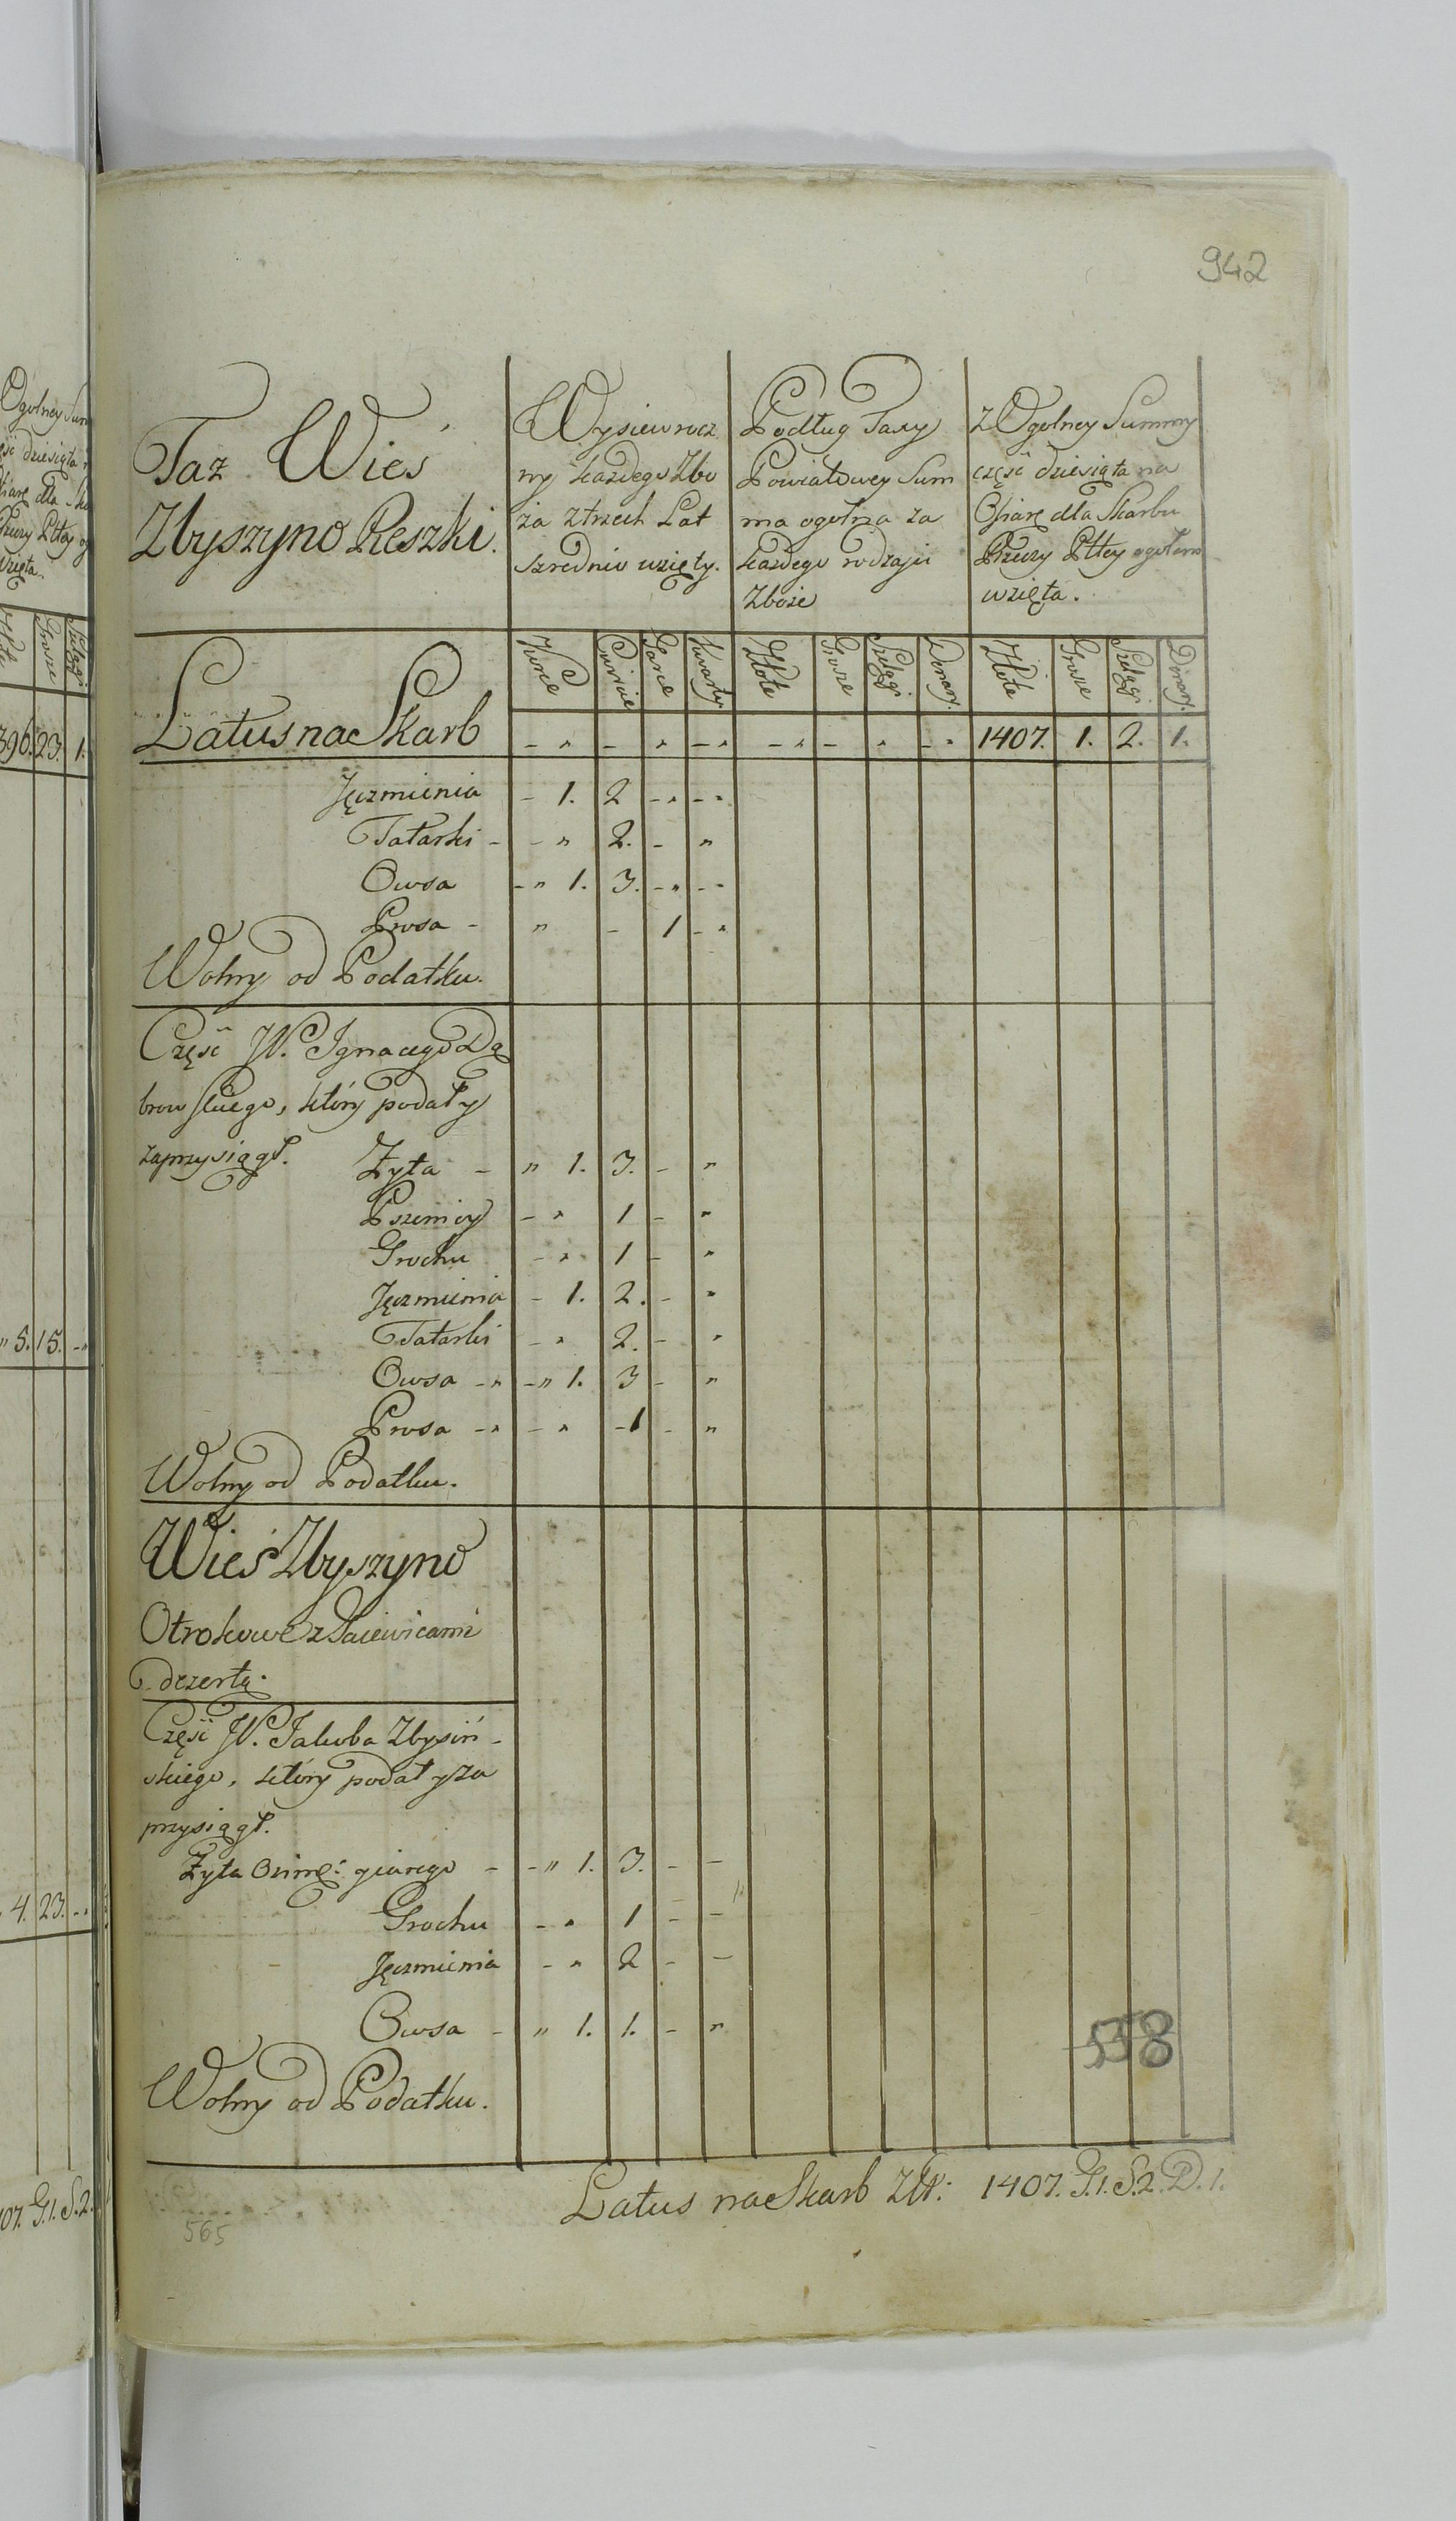 942
Taz Wieś
Zbyszyno Reszki.
Wysiew rocz
ny każdego Zbo
ża z trzech Lat
szrednio wzięty.
Podług Taxy
Powiatowey Sum
ma ogolna za
każdego rodzaju
Zboże
z Ogolney Summy
część dziesiąta na
Ofiarę dla Skarbu
Rzeczy Pltey ogołem
wzięta.
Korce Cwircie Garce Kwarty Złote Grosze Szelągi Denary Złote Grosze Szelągi Denary
Latus na Skarb - „ - „ - „ - „ - „ - „ 1407. 1. 2. 1.
Jęczmienia - 1. 2 - „ - „
Tatarki - - „ 2. - „
Owsa - „ 1. 3. - „ - „
Prosa - „ - 1 - „
Wolny od Podatku.
Część JP. Ignacego Dą
browskiego, który podał y
zaprzysiągł.
Żyta - „ 1. 3. - „
Pszenicy - „ 1 - „
Grochu - „ 1 - „
Jęczmienia - 1. 2. - „
Tatarki - „ 2. - „
Owsa - „ - „ 1. 3 - „
Prosa - „ - „ - 1 - „
Wolny od Podatku.
Wieś Zbyszyno
Otrokowe z
dezertą.
Część JP. Jakuba Zbysiń-
skiego, który podał y za
przysiągł.
Żyta Ozime: y iarego - - „ 1. 3. - -
Grochu - „ 1 - -
Jęczmienia - „ 2 - -
Owsa - „ 1. 1. - „
Wolny od Podatku.
558
Latus na Skarb Złt: 1407. G.1. S.2. D.1.
565
Ogolney Sum
ęść dziesiąta n
fiarę dla Ska
Rzeczy Pltey og
wzięta.
Grosze Szelągi
396. 23. 1.
„ 5. 15. - „
4. 23. - „
07. G.1. S.2.